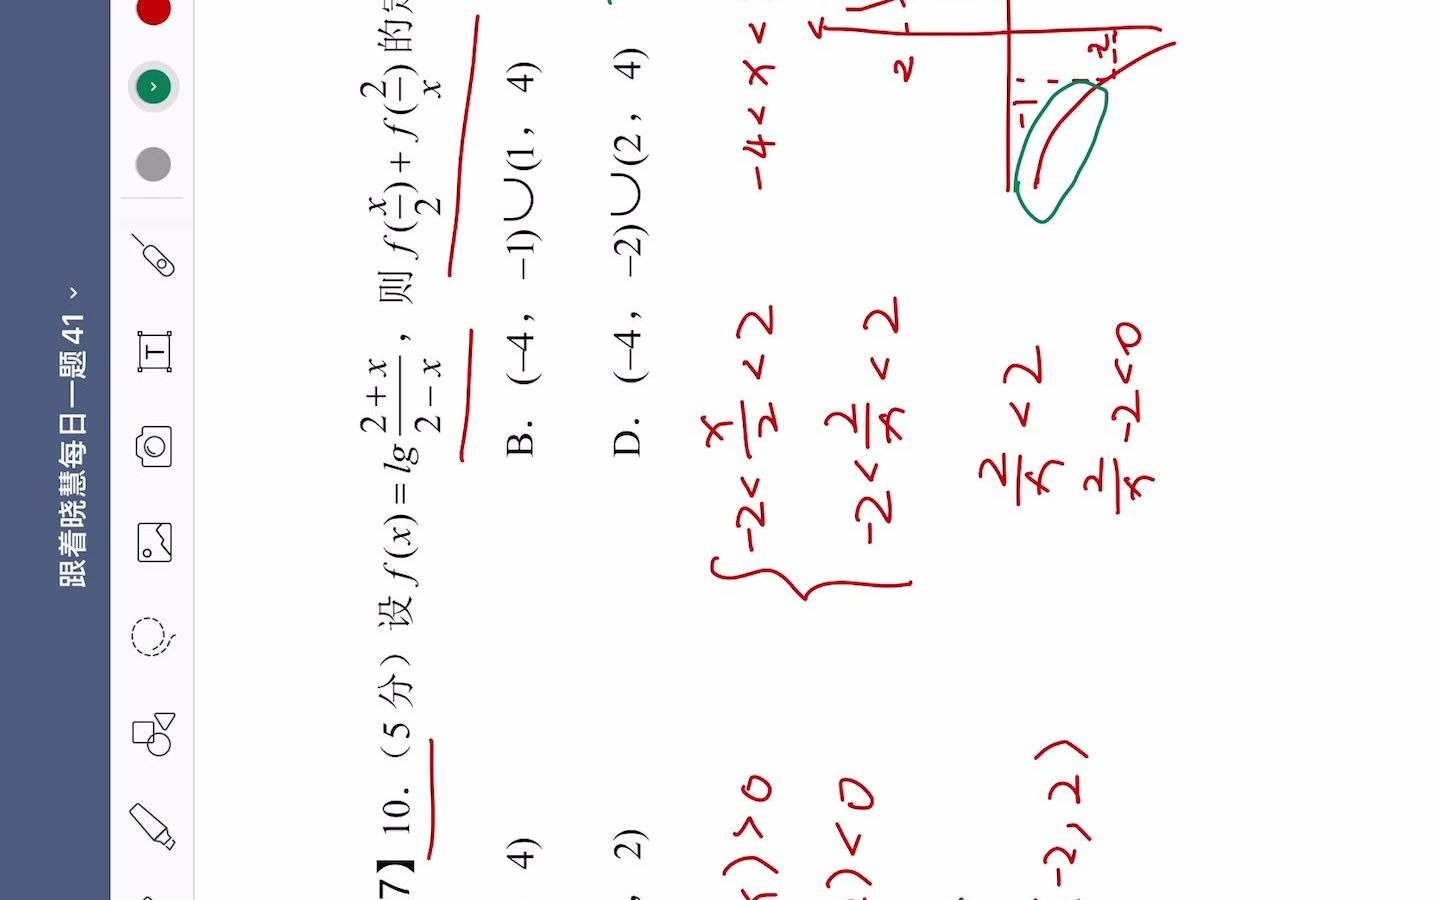 跟着晓慧每日一题 41
7】10.（5 分）设 f(x) = lg (2 + x)/(2 − x)，则 f(x/2) + f(2/x) 的
4)
B. (−4, −1)∪(1, 4)
, 2)
D. (−4, −2)∪(2, 4)
x) > 0
) < 0
-2, 2)
-2 < x/2 < 2
-2 < 2/x < 2
2/x < 2
2/x -2 < 0
-4 < x <
2
-1
2
T